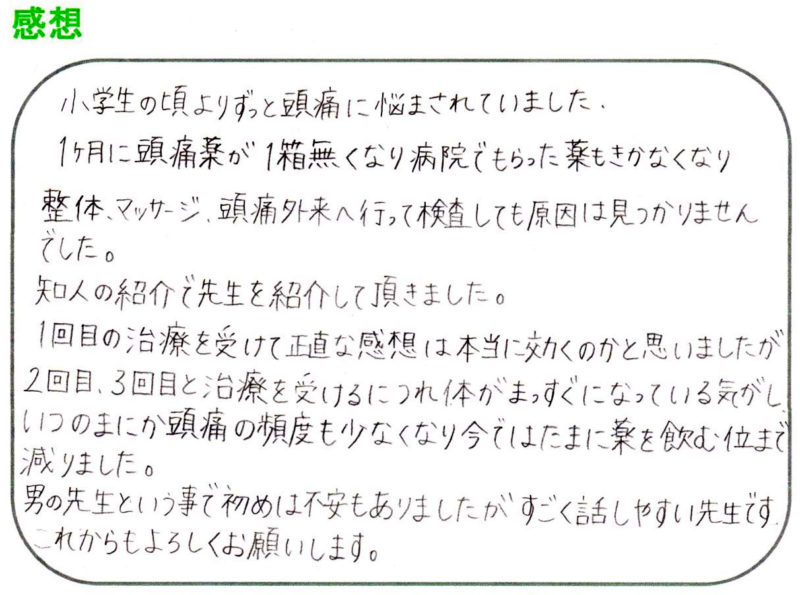 感想
小学生の頃よりずっと頭痛に悩まされていました.
1ヶ月に頭痛薬が1箱無くなり病院でもらった薬もきかなくなり
整体、マッサージ、頭痛外来へ行って検査しても原因は見つかりません
でした。
知人の紹介で先生を紹介して頂きました。
1回目の治療を受けて正直な感想は本当に効くのかと思いましたが
2回目、3回目と治療を受けるにつれ体がまっすぐになっている気がし、
いつのまにか頭痛の頻度も少なくなり今ではたまに薬を飲む位まで
減りました。
男の先生という事で初めは不安もありましたがすごく話しやすい先生です
これからもよろしくお願いします。